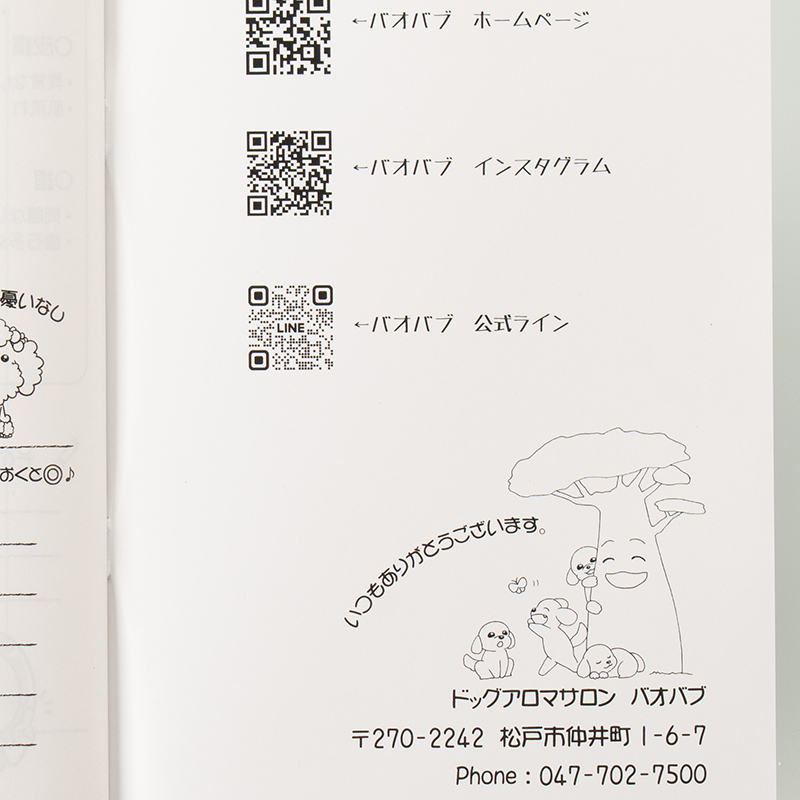 ←バオバブ ホームページ
←バオバブ インスタグラム
LINE
←バオバブ 公式ライン
憂いなし
おくと◎♪
いつもありがとうございます。
ドッグアロマサロン バオバブ
〒270-2242 松戸市仲井町1-6-7
Phone：047-702-7500